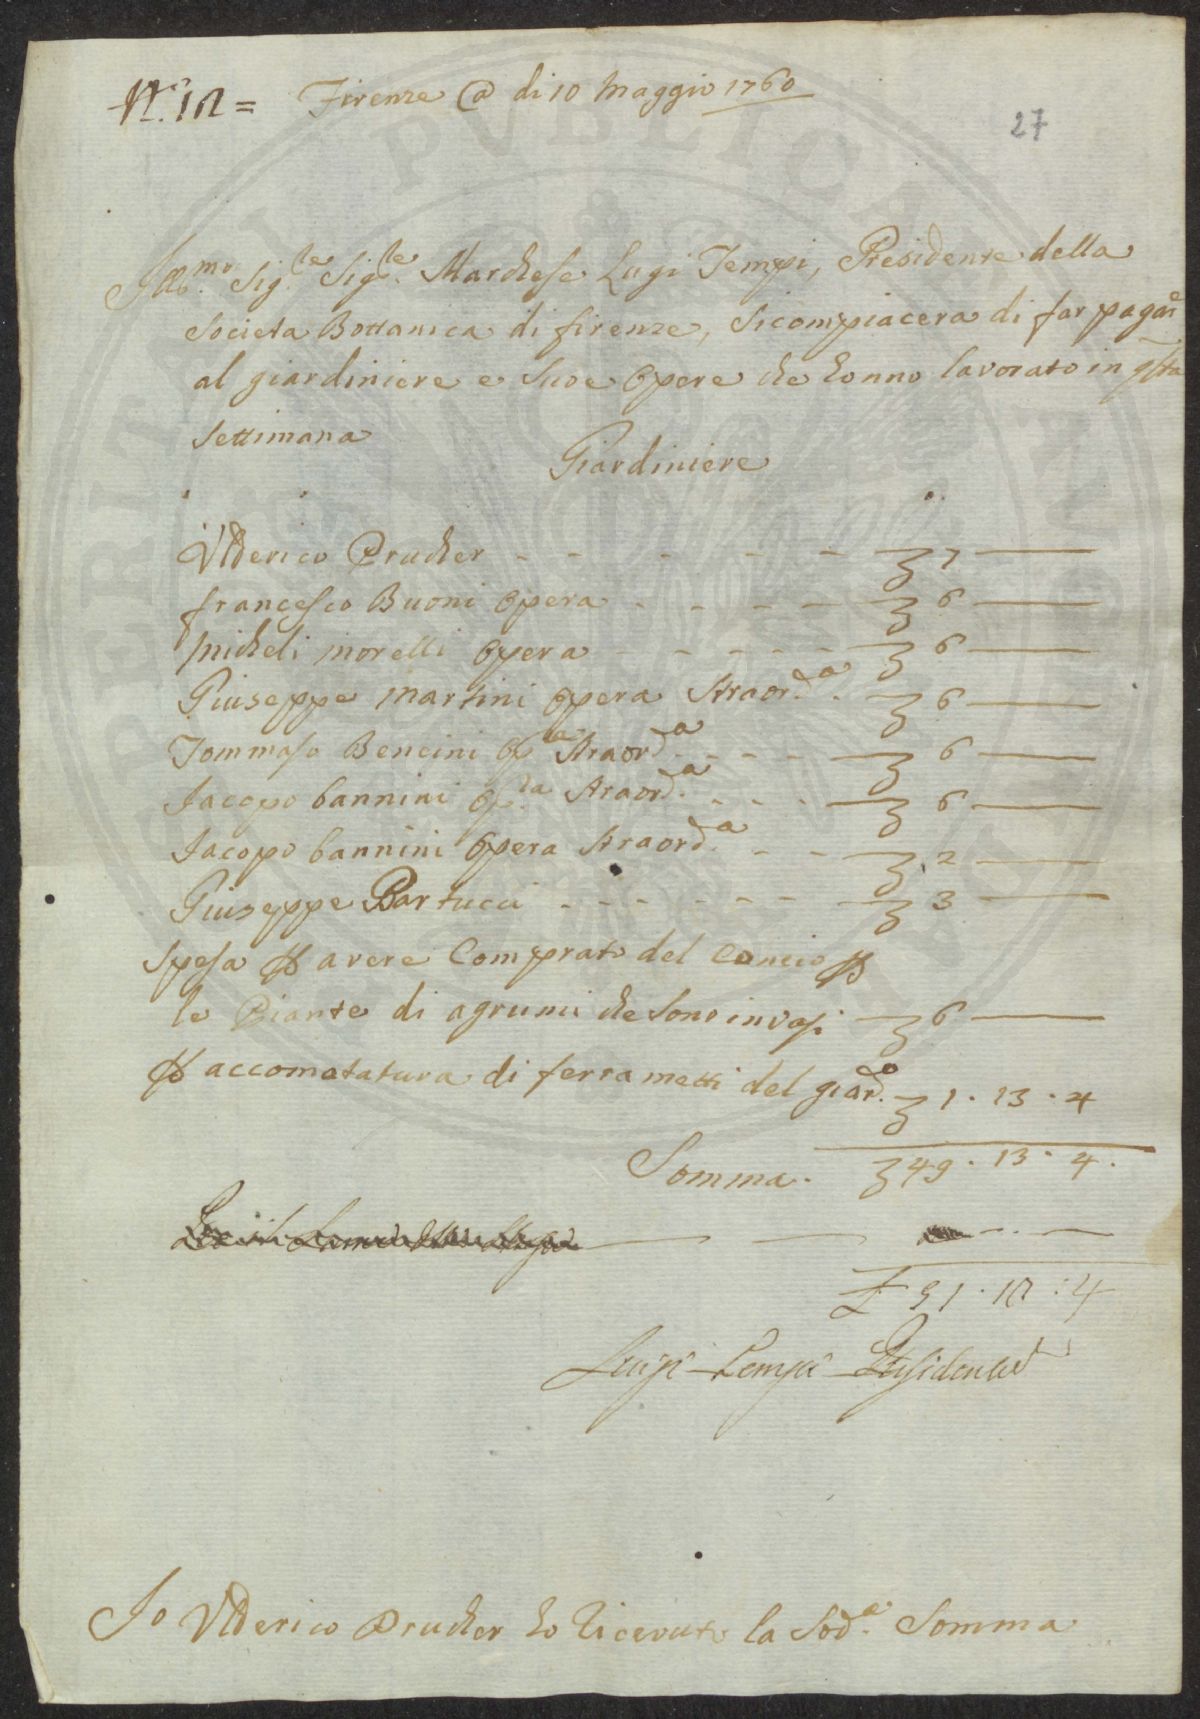 N.° 18 = Firenze @ di 10 Maggio 1760
27
Ill.mo Sig.re Sig.re Marchese Luigi Tempi, Presidente della
Societa Bottanica di firenze, Si compiacera di far pagare
al giardiniere e Sue Opere che honno lavorato in q.sta
Settimana
Giardiniere
Ulderico Prucher - - - - - 7 —
francesco Buoni Opera - - - - 6 —
Micheli morelli Opera - - - - - 6 —
Giuseppe Martini Opera Straord.a 6 —
Tommaso Bencini Op.a Straord.a - - - 6 —
Jacopo bannini Op.ra Straord.a - - - 6 —
Jacopo bannini Opera Straord.a - - 2 —
Giuseppe Bartucci - - - - - - 3 —
Spesa p avere Comprato del Concio p
le Piante di agrumi che Sono in vasi 6 —
p accomotatura di ferrametti del giard.o 1 . 13 . 4
Somma . 49 . 13 . 4 .
£ 51 . 18 : 4
Luigi Tempi Presidente
Io Ulderico Prucher ho Ricevuto la Sod.a Somma